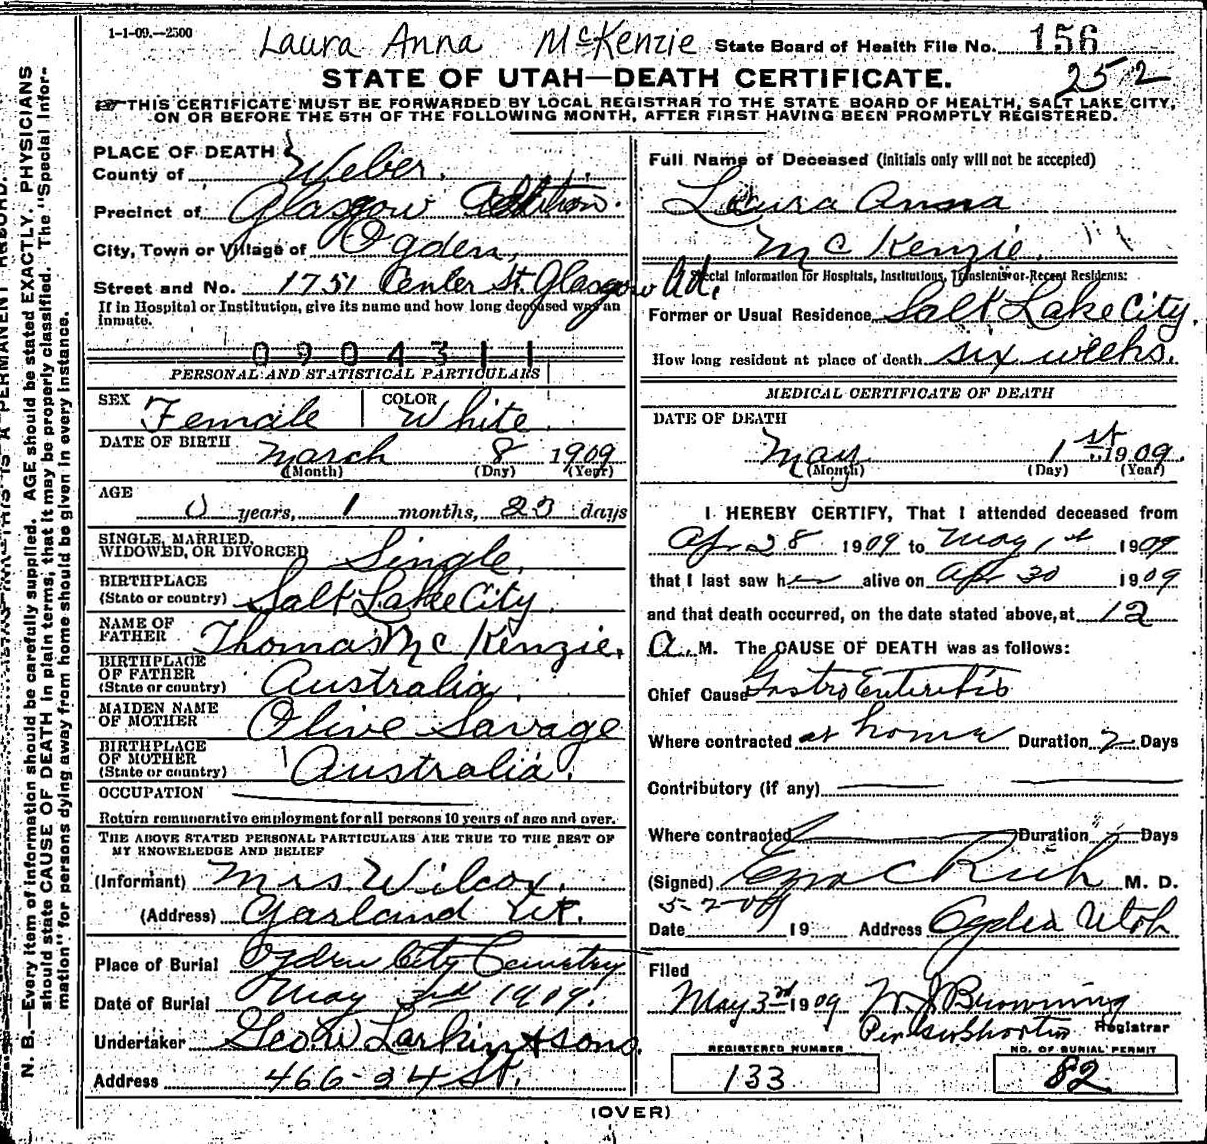 1-1-09.—2500
Laura Anna McKenzie
State Board of Health File No. 156
252
STATE OF UTAH—DEATH CERTIFICATE.
THIS CERTIFICATE MUST BE FORWARDED BY LOCAL REGISTRAR TO THE STATE BOARD OF HEALTH, SALT LAKE CITY,
ON OR BEFORE THE 5TH OF THE FOLLOWING MONTH, AFTER FIRST HAVING BEEN PROMPTLY REGISTERED.
N. B.—Every item of information should be carefully supplied. AGE should be stated EXACTLY. PHYSICIANS
should state CAUSE OF DEATH in plain terms, that it may be properly classified. The "Special Infor-
mation" for persons dying away from home should be given in every instance.
PLACE OF DEATH
County of Weber.
Precinct of Glasgow Addition.
City, Town or Village of Ogden,
Street and No. 1751 Center St. Glasgow Ad.
If in Hospital or Institution, give its name and how long deceased was an
inmate.
0904311
PERSONAL AND STATISTICAL PARTICULARS
SEX Female COLOR White
DATE OF BIRTH March 8 1909
(Month) (Day) (Year)
AGE
0 years, 1 months, 23 days
SINGLE, MARRIED,
WIDOWED, OR DIVORCED Single.
BIRTHPLACE
(State or country) Salt Lake City.
NAME OF
FATHER Thomas Mc Kenzie.
BIRTHPLACE
OF FATHER
(State or country) Australia.
MAIDEN NAME
OF MOTHER Olive Savage
BIRTHPLACE
OF MOTHER
(State or country) Australia.
OCCUPATION
Return remunerative employment for all persons 10 years of age and over.
THE ABOVE STATED PERSONAL PARTICULARS ARE TRUE TO THE BEST OF
MY KNOWLEDGE AND BELIEF
(Informant) Mrs. Wilcox.
(Address) Garland Ut.
Place of Burial Ogden City Cemetery
Date of Burial May 3rd 1909.
Undertaker Geo W Larkin & sons.
Address 466-24 St.
Full Name of Deceased (initials only will not be accepted)
Laura Anna
Mc Kenzie.
Special Information for Hospitals, Institutions, Transients or Recent Residents:
Former or Usual Residence Salt Lake City.
How long resident at place of death six weeks.
MEDICAL CERTIFICATE OF DEATH
DATE OF DEATH
May 1st 1909.
(Month) (Day) (Year)
I HEREBY CERTIFY, That I attended deceased from
Apr 28 1909 to May 1st 1909
that I last saw her alive on Apr 30 1909
and that death occurred, on the date stated above, at 12
A. M. The CAUSE OF DEATH was as follows:
Chief Cause Gastro Enteritis
Where contracted at home Duration 2 Days
Contributory (if any)
Where contracted Duration Days
(Signed) Ezra C Rich M. D.
5-2-09
Date 19 Address Ogden Utah
Filed
May 3rd 1909 W J Browning
Registrar
REGISTERED NUMBER
133
NO. OF BURIAL PERMIT
82
(OVER)